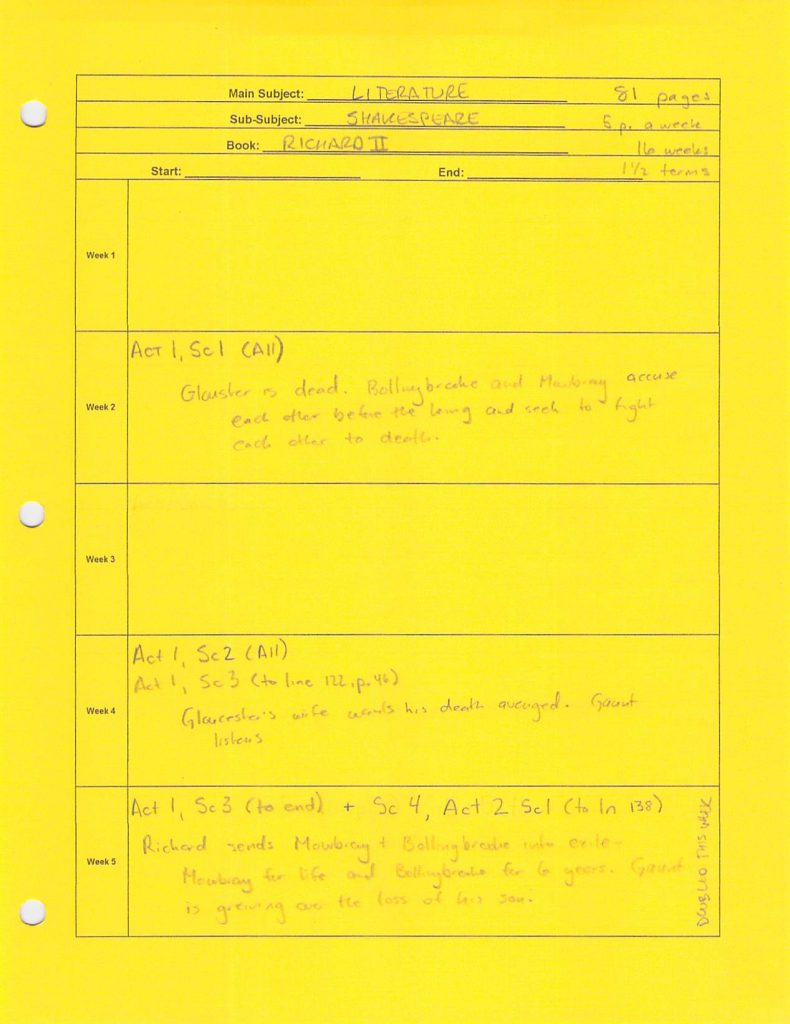 Main Subject: LITERATURE 81 pages
Sub-Subject: SHAKESPEARE 5 p. a week
Book: RICHARD II 16 weeks
Start: End: 1 1/2 terms
Week 1
Week 2
Act 1, Sc1 (All)
Glouster is dead. Bollingbroke and Mowbray accuse
each other before the king and seek to fight
each other to death.
Week 3
Week 4
Act 1, Sc2 (All)
Act 1, Sc3 (to line 122, p. 46)
Gloucester's wife wants his death avenged. Gaunt
listens
Week 5
Act 1, Sc3 (to end) + Sc 4, Act 2 Sc1 (to ln 138)
Richard sends Mowbray + Bollingbroke into exile -
Mowbray for life and Bollingbroke for 6 years. Gaunt
is greiving over the loss of his son.
DOUBLED THIS WEEK